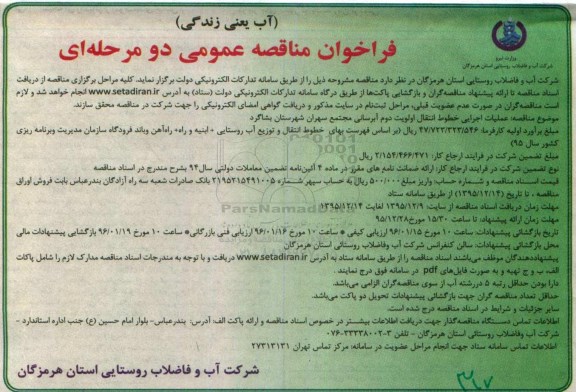 (آب یعنی زندگی)
فراخوان مناقصه عمومی دو مرحله‌ای
وزارت نیرو
شرکت آب و فاضلاب روستایی استان هرمزگان
شرکت آب و فاضلاب روستایی استان هرمزگان در نظر دارد مناقصه مشروحه ذیل را از طریق سامانه تدارکات الکترونیکی دولت برگزار نماید. کلیه مراحل برگزاری مناقصه از دریافت
اسناد مناقصه تا ارائه پیشنهاد مناقصه‌گران و بازگشایی پاکت‌ها از طریق درگاه سامانه تدارکات الکترونیکی دولت (ستاد) به آدرس www.setadiran.ir انجام خواهد شد و لازم
است مناقصه‌گران در صورت عدم عضویت قبلی، مراحل ثبت‌نام در سایت مذکور و دریافت گواهی امضای الکترونیکی را جهت شرکت در مناقصه محقق سازند.
موضوع مناقصه: عملیات اجرایی خطوط انتقال اولویت دوم آبرسانی مجتمع سهران شهرستان بشاگرد
مبلغ برآورد اولیه کارفرما: ۴۷/۷۲۳/۳۲۳/۵۴۶ ریال (بر اساس فهرست بهای خطوط انتقال و توزیع آب روستایی - ابنیه و راه- راه‌آهن وباند فرودگاه سازمان مدیریت وبرنامه ریزی
کشور سال ۹۵)
مبلغ تضمین شرکت در فرایند ارجاع کار: ۲/۱۵۴/۴۶۶/۴۷۱ ریال
نوع تضمین شرکت در فرایند ارجاع کار: ارائه ضمانت نامه های مقرر در ماده ۴ آئین‌نامه تضمین معاملات دولتی سال۹۴ بشرح مندرج در اسناد مناقصه
قیمت اسناد مناقصه و شماره حساب: واریز مبلغ ۵۰۰/۰۰۰ ریال به حساب سپهر شماره ۲۱۹۵۲۱۵۴۹۱۰۰۵ بانک صادرات شعبه سه راه آزادگان بندرعباس بابت فروش اوراق
مناقصه ، تا تاریخ (۱۳۹۵/۱۲/۱۴) از طریق سامانه ستاد
مهلت زمان دریافت اسناد مناقصه از سایت: ۱۳۹۵/۱۲/۹ لغایت ۱۳۹۵/۱۲/۱۴
مهلت زمان ارائه پیشنهاد: تا ساعت ۱۵/۳۰ مورخ ۹۵/۱۲/۲۸
تاریخ بازگشائی پیشنهادات ساعت ۱۰ مورخ ۹۶/۰۱/۱۵ ارزیابی کیفی * ساعت ۱۰ مورخ ۹۶/۰۱/۱۶ ارزیابی فنی بازرگانی* ساعت ۱۰ مورخ ۹۶/۰۱/۱۹ بازگشایی پیشنهادات مالی
محل بازگشائی پیشنهادات: سالن کنفرانس شرکت آب وفاضلاب روستائی استان هرمزگان
پیشنهاددهندگان موظف می‌باشند اسناد مناقصه را از طریق سامانه ستاد به آدرس www.setadiran.ir دریافت و با توجه به مندرجات اسناد مناقصه مدارک لازم را شامل پاکات
الف، ب و ج تهیه و به صورت فایل‌های pdf در سامانه فوق درج نمایند.
دارا بودن حداقل رتبه ۵ دررشته آب از سوی مناقصه‌گران الزامی می‌باشد.
حداقل تعداد مناقصه گران جهت بازگشائی پیشنهادات تحویل دو پاکت می‌باشد.
سایر جزئیات و شرایط در اسناد مناقصه درج شده است.
اطلاعات تماس دستگاه مناقصه‌گذار جهت دریافت اطلاعات بیشتر در خصوص اسناد مناقصه و ارائه پاکت الف: آدرس: بندرعباس- بلوار امام حسین (ع) جنب اداره استاندارد -
شرکت آب وفاضلاب روستائی استان هرمزگان – تلفن ۳-۰۷۶-۳۳۳۳۸۰۰۲
اطلاعات تماس سامانه ستاد جهت انجام مراحل عضویت در سامانه: مرکز تماس تهران ۲۷۳۱۳۱۳۱
شرکت آب و فاضلاب روستایی استان هرمزگان